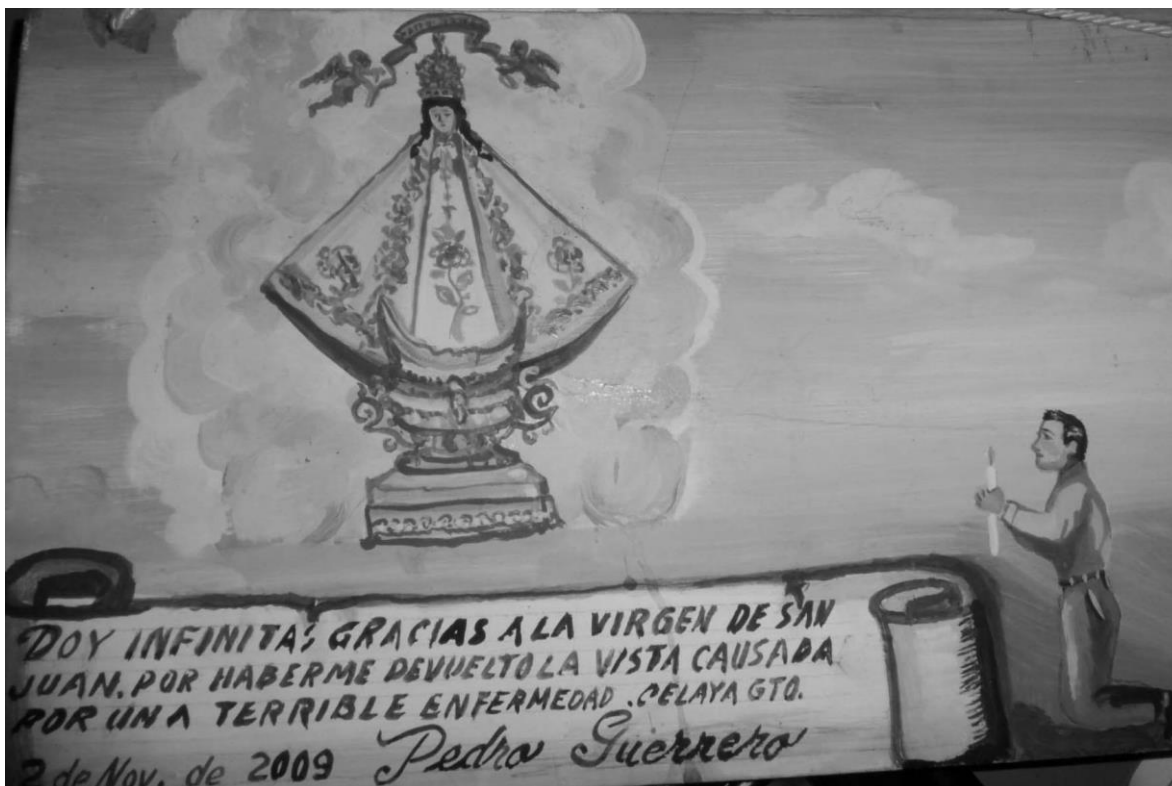 DOY INFINITAS GRACIAS A LA VIRGEN DE SAN
JUAN. POR HABERME DEVUELTO LA VISTA CAUSADA
POR UNA TERRIBLE ENFERMEDAD. CELAYA GTO.
2 de Nov. de 2009 Pedro Guerrero